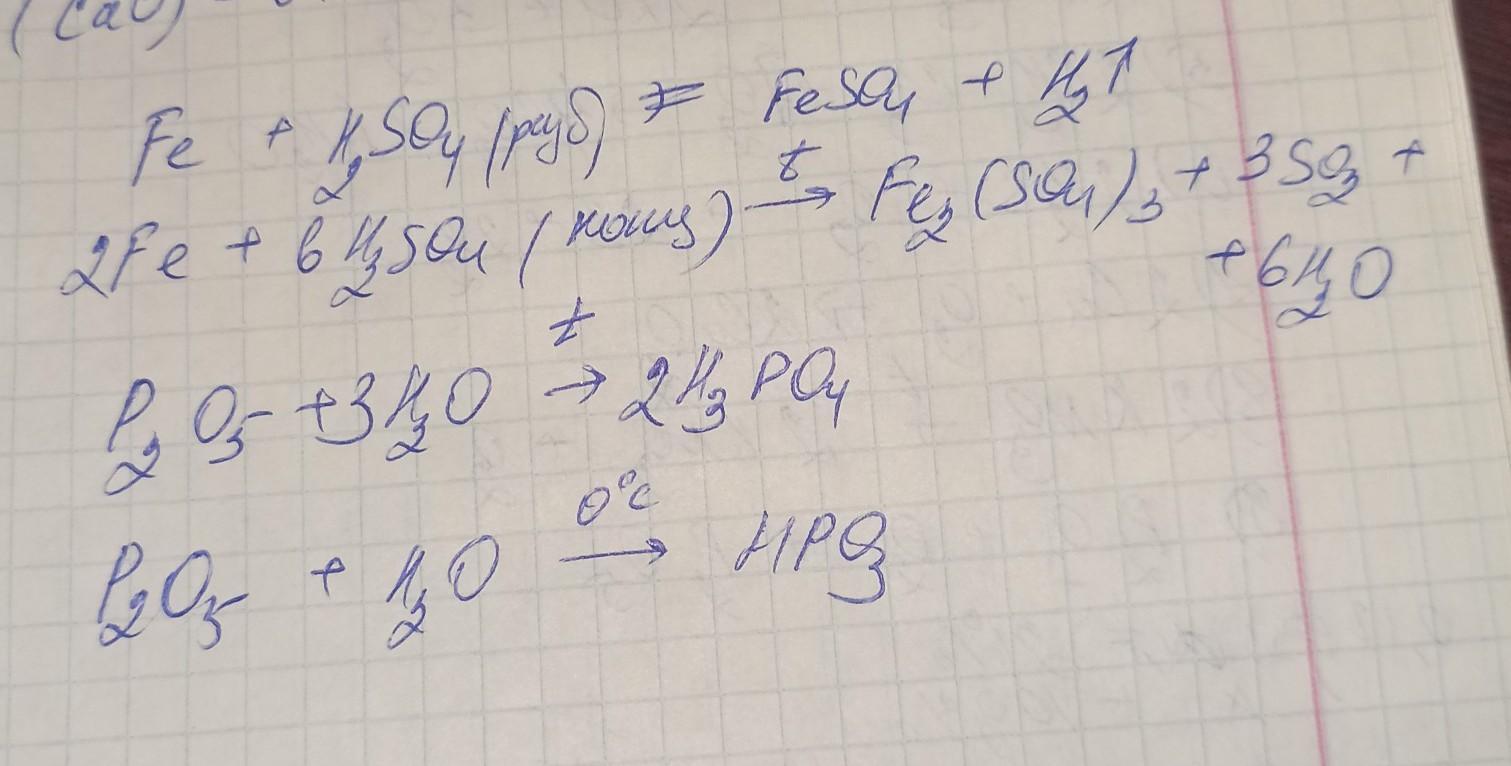 (CaO)
Fe + H₂SO₄ = FeSO₄ + H₂↑
2Fe + 6H₂SO₄ (конц) →ᵗ Fe₂(SO₄)₃ + 3SO₂ +
+ 6H₂O
P₂O₅ + 3H₂O →ᵗ 2H₃PO₄
P₂O₅ + H₂O 0°C→ HPO₃